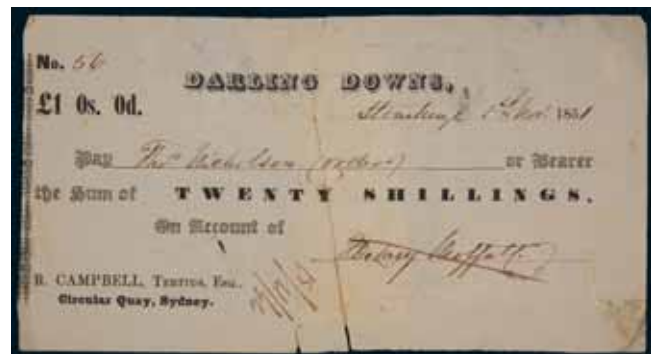 No. 56
DARLING DOWNS,
£1 0s. 0d.
1st Nov. 1851
Pay Thos Nicholson (order) or Bearer
the Sum of TWENTY SHILLINGS.
On Account of
Moffatt
R. CAMPBELL, TERTIUS, ESQ.
Circular Quay, Sydney.